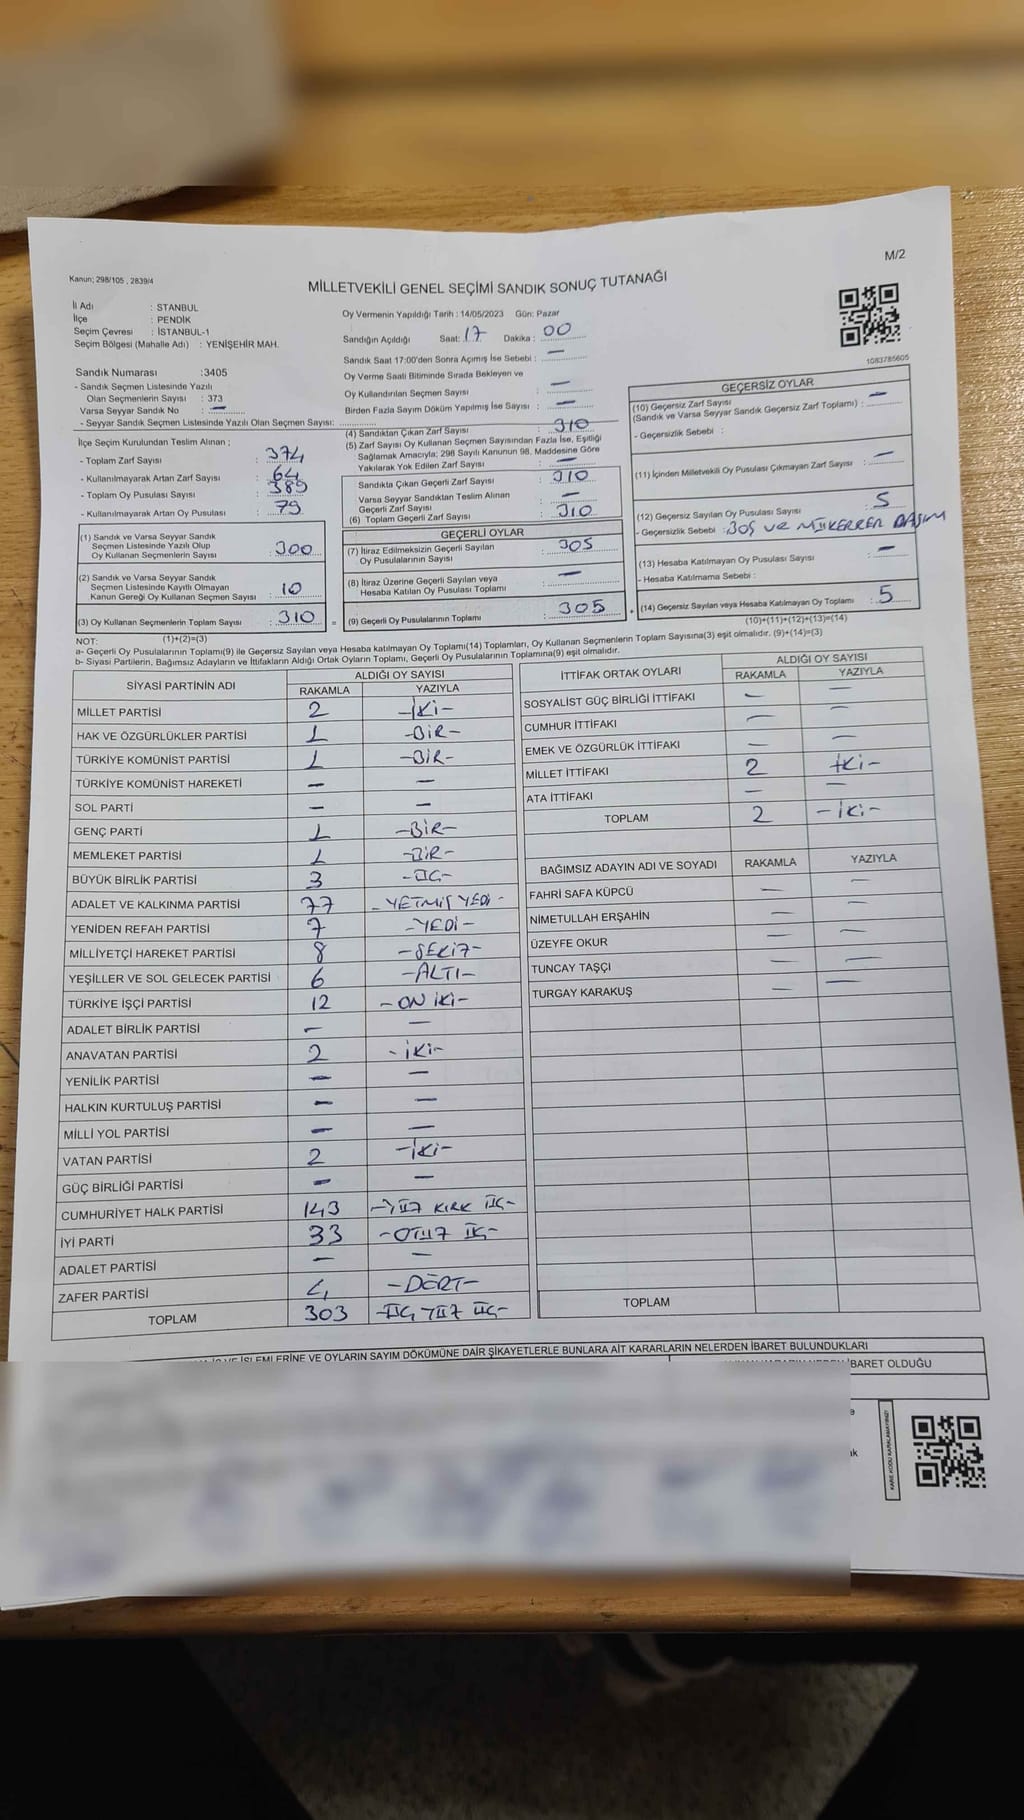 M/2
Kanun; 298/105 , 2839/4
MİLLETVEKİLİ GENEL SEÇİMİ SANDIK SONUÇ TUTANAĞI
İl Adı : STANBUL
İlçe : PENDİK
Seçim Çevresi : İSTANBUL-1
Seçim Bölgesi (Mahalle Adı) : YENİŞEHİR MAH.
Oy Vermenin Yapıldığı Tarih : 14/05/2023 Gün: Pazar
Sandığın Açıldığı Saat: 17 Dakika : 00
Sandık Saat 17:00'den Sonra Açımış İse Sebebi : —
Oy Verme Saati Bitiminde Sırada Bekleyen ve
Oy Kullandırılan Seçmen Sayısı : —
Birden Fazla Sayım Döküm Yapılmış İse Sayısı : —
1083785605
Sandık Numarası :3405
- Sandık Seçmen Listesinde Yazılı
Olan Seçmenlerin Sayısı : 373
Varsa Seyyar Sandık No : —
- Seyyar Sandık Seçmen Listesinde Yazılı Olan Seçmen Sayısı:
İlçe Seçim Kurulundan Teslim Alınan ;
- Toplam Zarf Sayısı : 374
- Kullanılmayarak Artan Zarf Sayısı : 64
- Toplam Oy Pusulası Sayısı : 389
- Kullanılmayarak Artan Oy Pusulası : 79
(1) Sandık ve Varsa Seyyar Sandık
Seçmen Listesinde Yazılı Olup
Oy Kullanan Seçmenlerin Sayısı : 300
(2) Sandık ve Varsa Seyyar Sandık
Seçmen Listesinde Kayıtlı Olmayan
Kanun Gereği Oy Kullanan Seçmen Sayısı : 10
(3) Oy Kullanan Seçmenlerin Toplam Sayısı : 310
(4) Sandıktan Çıkan Zarf Sayısı : 310
(5) Zarf Sayısı Oy Kullanan Seçmen Sayısından Fazla İse, Eşitliği
Sağlamak Amacıyla; 298 Sayılı Kanunun 98. Maddesine Göre
Yakılarak Yok Edilen Zarf Sayısı : —
Sandıkta Çıkan Geçerli Zarf Sayısı : 310
Varsa Seyyar Sandıktan Teslim Alınan
Geçerli Zarf Sayısı : —
(6) Toplam Geçerli Zarf Sayısı : 310
GEÇERLİ OYLAR
(7) İtiraz Edilmeksizin Geçerli Sayılan
Oy Pusulalarının Sayısı : 305
(8) İtiraz Üzerine Geçerli Sayılan veya
Hesaba Katılan Oy Pusulası Toplamı : —
= (9) Geçerli Oy Pusulalarının Toplamı : 305
GEÇERSİZ OYLAR
(10) Geçersiz Zarf Sayısı
(Sandık ve Varsa Seyyar Sandık Geçersiz Zarf Toplamı) : —
- Geçersizlik Sebebi :
(11) İçinden Milletvekili Oy Pusulası Çıkmayan Zarf Sayısı : —
(12) Geçersiz Sayılan Oy Pusulası Sayısı : 5
- Geçersizlik Sebebi : BOŞ VE MÜKERRER BASIM
(13) Hesaba Katılmayan Oy Pusulası Sayısı : —
- Hesaba Katılmama Sebebi :
+ (14) Geçersiz Sayılan veya Hesaba Katılmayan Oy Toplamı : 5
NOT: (1)+(2)=(3)
(10)+(11)+(12)+(13)=(14)
a- Geçerli Oy Pusulalarının Toplamı(9) ile Geçersiz Sayılan veya Hesaba katılmayan Oy Toplamı(14) Toplamları, Oy Kullanan Seçmenlerin Toplam Sayısına(3) eşit olmalıdır. (9)+(14)=(3)
b- Siyasi Partilerin, Bağımsız Adayların ve İttifakların Aldığı Ortak Oyların Toplamı, Geçerli Oy Pusulalarının Toplamına(9) eşit olmalıdır.
SİYASİ PARTİNİN ADI ALDIĞI OY SAYISI
RAKAMLA YAZIYLA
MİLLET PARTİSİ 2 -İKİ-
HAK VE ÖZGÜRLÜKLER PARTİSİ 1 -BİR-
TÜRKİYE KOMÜNİST PARTİSİ 1 -BİR-
TÜRKİYE KOMÜNİST HAREKETİ — —
SOL PARTİ — —
GENÇ PARTİ 1 -BİR-
MEMLEKET PARTİSİ 1 -BİR-
BÜYÜK BİRLİK PARTİSİ 3 -ÜÇ-
ADALET VE KALKINMA PARTİSİ 77 -YETMİŞ YEDİ-
YENİDEN REFAH PARTİSİ 7 -YEDİ-
MİLLİYETÇİ HAREKET PARTİSİ 8 -SEKİZ-
YEŞİLLER VE SOL GELECEK PARTİSİ 6 -ALTI-
TÜRKİYE İŞÇİ PARTİSİ 12 -ON İKİ-
ADALET BİRLİK PARTİSİ — —
ANAVATAN PARTİSİ 2 -İKİ-
YENİLİK PARTİSİ — —
HALKIN KURTULUŞ PARTİSİ — —
MİLLİ YOL PARTİSİ — —
VATAN PARTİSİ 2 -İKİ-
GÜÇ BİRLİĞİ PARTİSİ — —
CUMHURİYET HALK PARTİSİ 143 -YÜZ KIRK ÜÇ-
İYİ PARTİ 33 -OTUZ ÜÇ-
ADALET PARTİSİ — —
ZAFER PARTİSİ 4 -DÖRT-
TOPLAM 303 -ÜÇ YÜZ ÜÇ-
İTTİFAK ORTAK OYLARI ALDIĞI OY SAYISI
RAKAMLA YAZIYLA
SOSYALİST GÜÇ BİRLİĞİ İTTİFAKI — —
CUMHUR İTTİFAKI — —
EMEK VE ÖZGÜRLÜK İTTİFAKI — —
MİLLET İTTİFAKI 2 -İKİ-
ATA İTTİFAKI — —
TOPLAM 2 -İKİ-
BAĞIMSIZ ADAYIN ADI VE SOYADI RAKAMLA YAZIYLA
FAHRİ SAFA KÜPCÜ — —
NİMETULLAH ERŞAHİN — —
ÜZEYFE OKUR — —
TUNCAY TAŞÇI — —
TURGAY KARAKUŞ — —
TOPLAM
İŞLEMLERİNE VE OYLARIN SAYIM DÖKÜMÜNE DAİR ŞİKAYETLERLE BUNLARA AİT KARARLARIN NELERDEN İBARET BULUNDUKLARI
İBARET OLDUĞU
KARE KODU KARALAMAYINIZ!